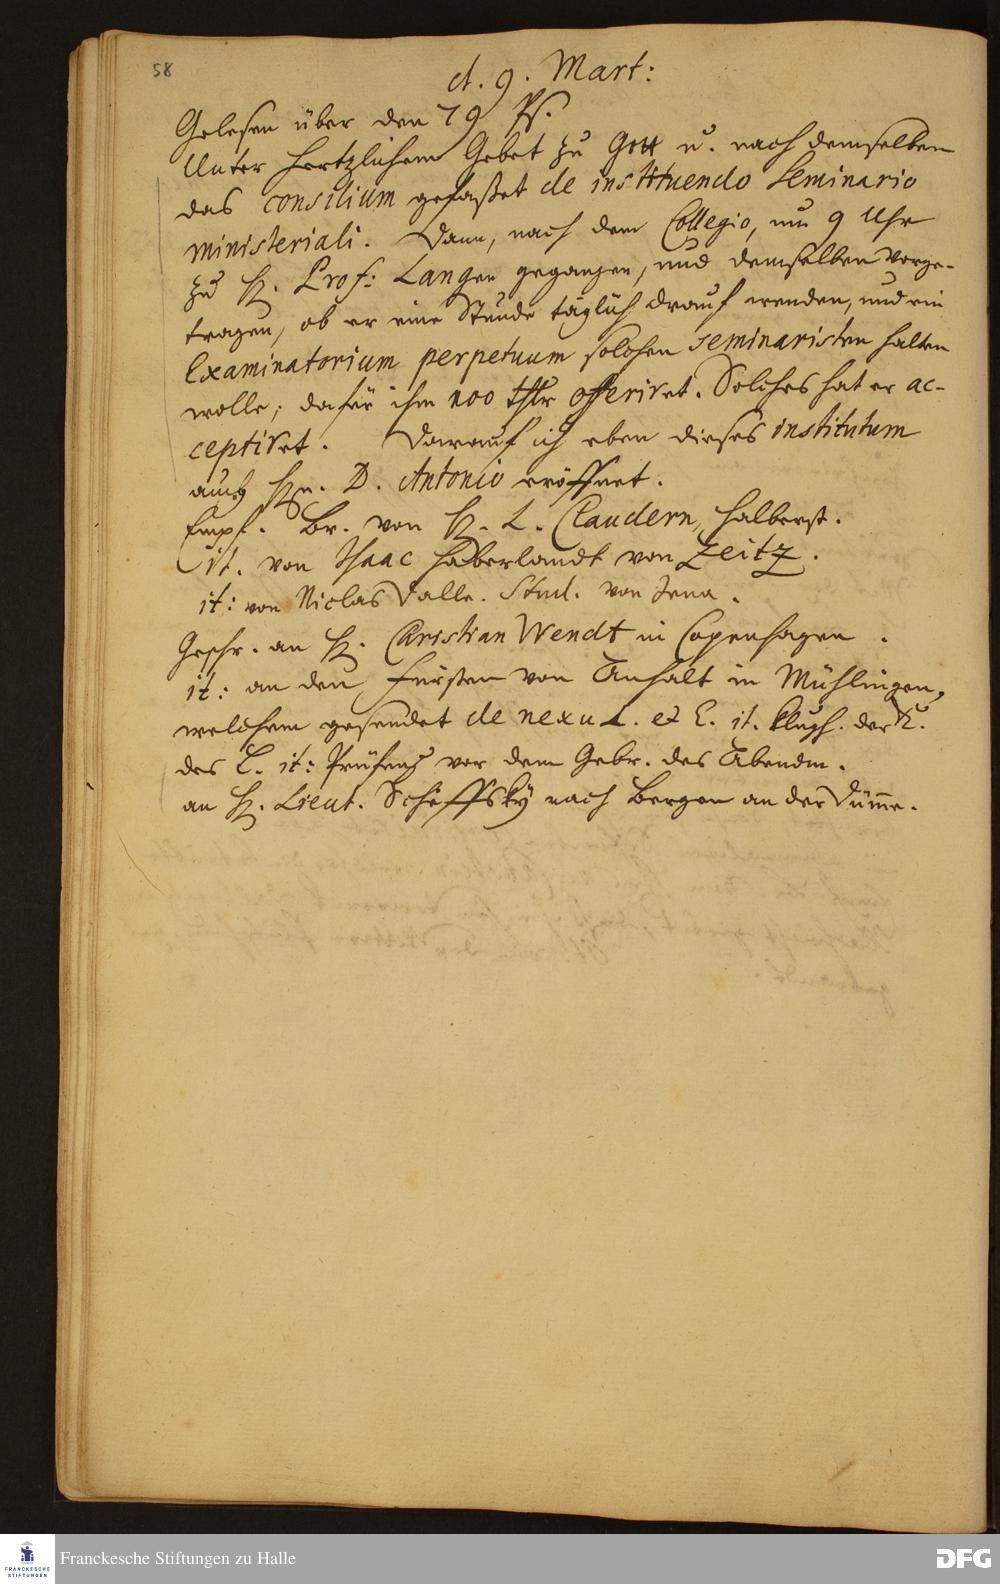 58
d. 9. Mart:
Gelesen über den 79 Ps.
Unter hertzlichem Gebet zu Gott u. nach demselben
das consilium gefaßet de instituendo Seminario
ministeriali. Dann, nach dem Collegio, um 9 Uhr
zu H. Prof: Langen gegangen, und demselben vorge-
tragen, ob er eine Stunde täglich drauf wenden, und ein
Examinatorium perpetuum solchen seminaristen halten
wolle; dafür ihm 100 thlr offeriret. Solches hat er ac-
ceptiret. Darauf ich eben dieses institutum
auch Hn. D. Antonio eröffnet.
Empf. Br. von H. L. Claudern, Halberst.
it. von Isaac Haberlandt von Zeitz.
it: von Niclas Dalle. Stud. von Jena.
Geschr. an H. Christian Wendt in Copenhagen.
it: an den Fürsten von Anhalt in Mühlingen,
welchem gesendet de nexu L. et E. it. der K.
des C. it: Prüfung vor dem Gebr. des Abendm.
an H. Lieut. Scheffsky nach Bergen an der Dumme.
Franckesche Stiftungen zu Halle
FRANCKESCHE
STIFTUNGEN
DFG